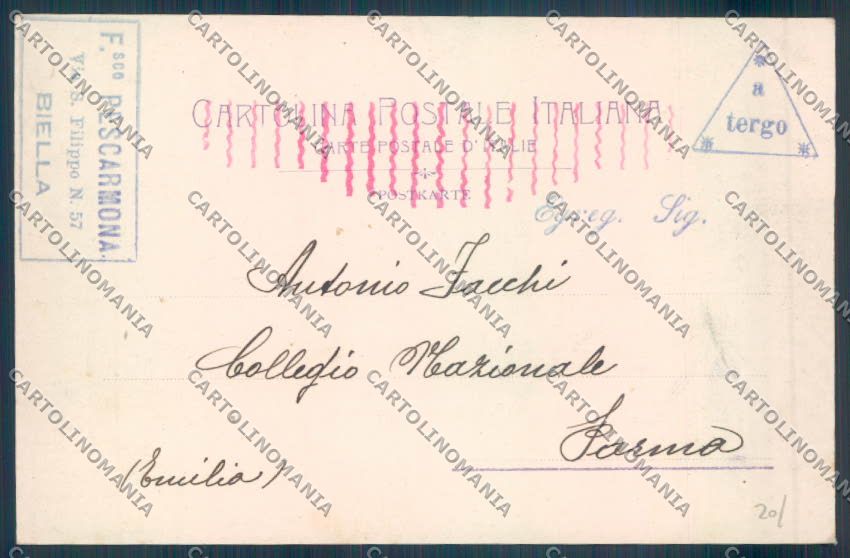 F.sco PESCARMONA
Via S. Filippo N. 57
BIELLA
CARTOLINA POSTALE ITALIANA
CARTE POSTALE D'ITALIE
POSTKARTE
a
tergo
Egreg. Sig.
Antonio Facchi
Collegio Nazionale
Parma
(Emilia)
20/
CARTOLINOMANIA